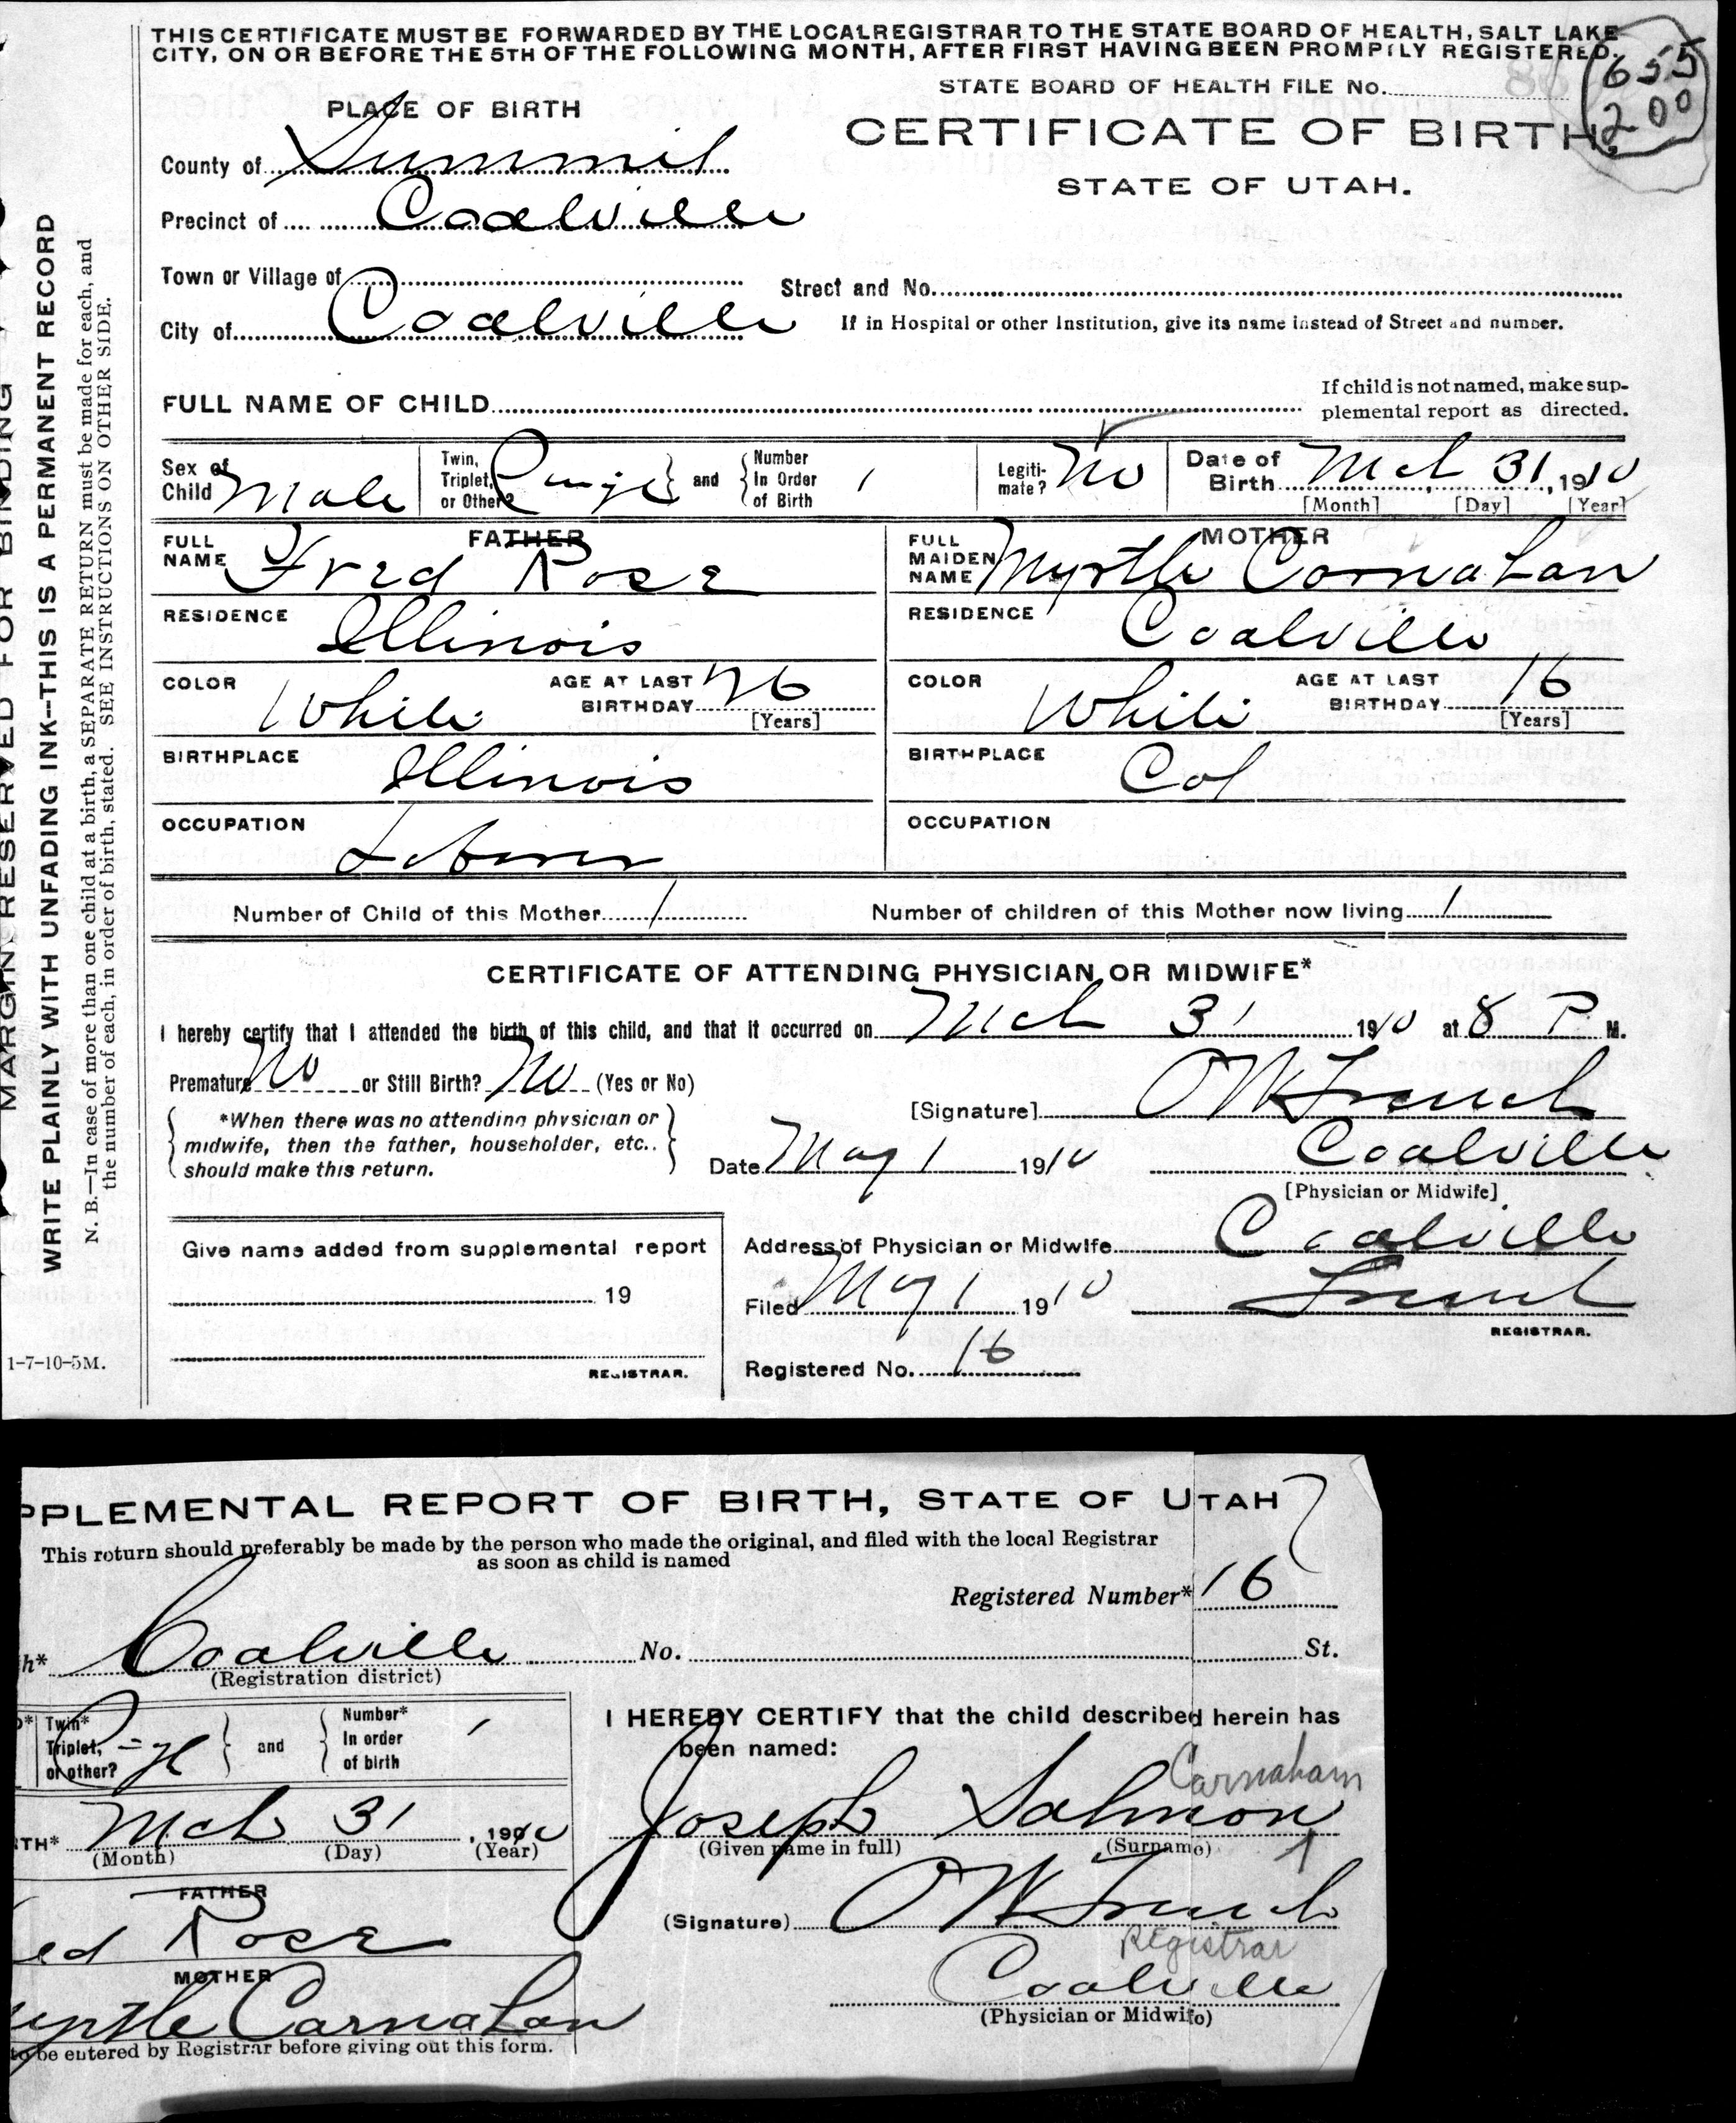 THIS CERTIFICATE MUST BE FORWARDED BY THE LOCAL REGISTRAR TO THE STATE BOARD OF HEALTH, SALT LAKE
CITY, ON OR BEFORE THE 5TH OF THE FOLLOWING MONTH, AFTER FIRST HAVING BEEN PROMPTLY REGISTERED.
655
200
STATE BOARD OF HEALTH FILE No.
PLACE OF BIRTH
CERTIFICATE OF BIRTH
STATE OF UTAH.
County of Summit
Precinct of Coalville
Town or Village of
Street and No.
City of Coalville
If in Hospital or other Institution, give its name instead of Street and number.
FULL NAME OF CHILD
If child is not named, make sup-
plemental report as directed.
Sex of Child Male
Twin, Triplet, or Other? and Number In Order of Birth 1
Legiti-mate? No
Date of Birth Mch 31, 1910
[Month] [Day] [Year]
FATHER
FULL NAME Fred Rose
RESIDENCE Illinois
COLOR White AGE AT LAST BIRTHDAY 26 [Years]
BIRTHPLACE Illinois
OCCUPATION Laborer
MOTHER
FULL MAIDEN NAME Myrtle Carnahan
RESIDENCE Coalville
COLOR White AGE AT LAST BIRTHDAY 16 [Years]
BIRTHPLACE Col
OCCUPATION
Number of Child of this Mother 1 Number of children of this Mother now living 1
CERTIFICATE OF ATTENDING PHYSICIAN OR MIDWIFE*
I hereby certify that I attended the birth of this child, and that it occurred on Mch 31 1910 at 8 P M.
Premature No or Still Birth? No (Yes or No)
*When there was no attending physician or
midwife, then the father, householder, etc..
should make this return.
[Signature] O W French
Date May 1 1910 Coalville
[Physician or Midwife]
Give name added from supplemental report
19
REGISTRAR.
Address of Physician or Midwife Coalville
Filed May 1 1910 French
REGISTRAR.
Registered No. 16
MARGIN RESERVED FOR BINDING
WRITE PLAINLY WITH UNFADING INK--THIS IS A PERMANENT RECORD
N. B.—In case of more than one child at a birth, a SEPARATE RETURN must be made for each, and
the number of each, in order of birth, stated. SEE INSTRUCTIONS ON OTHER SIDE.
1-7-10-5M.
PPLEMENTAL REPORT OF BIRTH, STATE OF UTAH
This return should preferably be made by the person who made the original, and filed with the local Registrar
as soon as child is named
Registered Number* 16
h* Coalville No. St.
(Registration district)
Twin* Triplet, or other? and Number* In order of birth 1
TH* Mch 31, 1910
(Month) (Day) (Year)
FATHER
ed Rose
MOTHER
yrtle Carnahan
to be entered by Registrar before giving out this form.
I HEREBY CERTIFY that the child described herein has
been named:
Carnaham
Joseph Salmon
(Given name in full) (Surname)
(Signature) O W French
Registrar
Coalville
(Physician or Midwife)